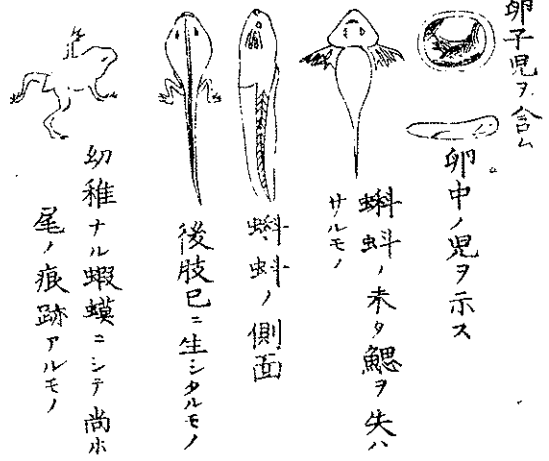 卵子児ヲ含ム
卵中ノ児ヲ示ス
蝌蚪ノ未タ鰓ヲ失ハ
サルモノ
蝌蚪ノ側面
後肢已ニ生シタルモノ
幼稚ナル蝦蟆ニシテ尚ホ
尾ノ痕跡アルモノ